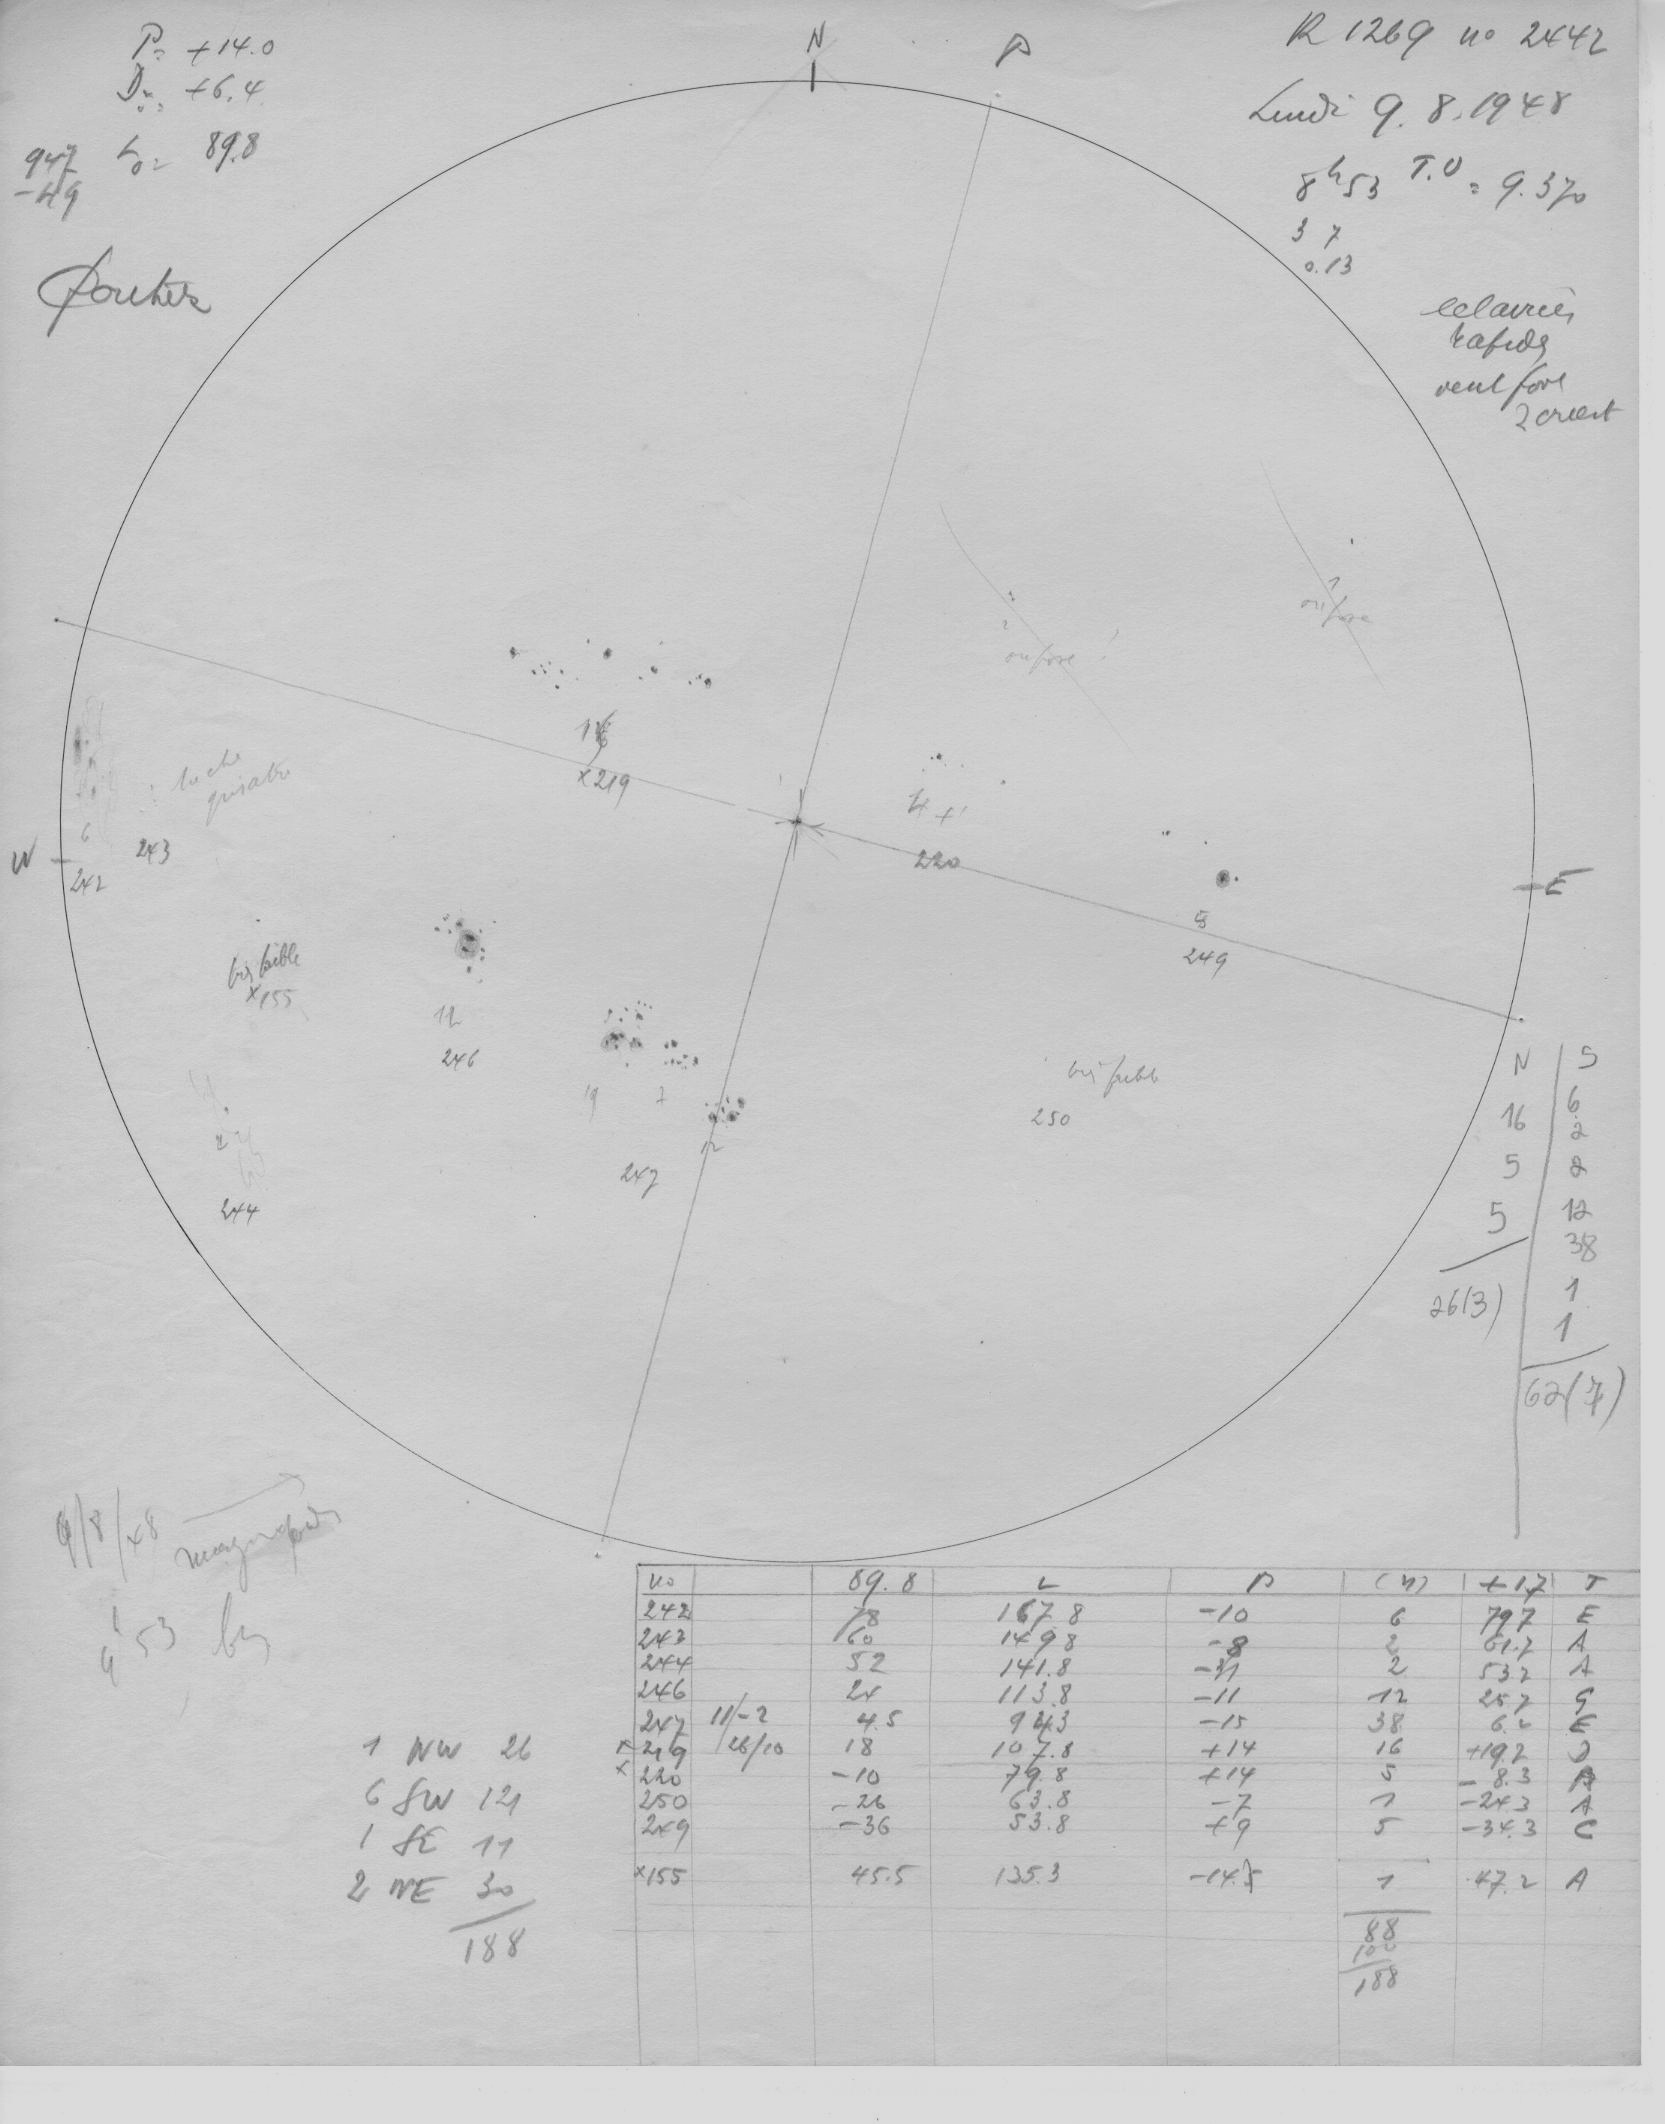 P= +14.0
D⊙= +6.4
L⊙= 89.8
947
-49
N
P
R 1269 no 2442
Lundi 9.8.1948
8h53 T.U = 9.370
3 7
0.13
eclaircies
rapides
vent fort
2
1
2
16
×219
tache
grisatre
6
242
243
W
4+1
220
E
5
249
tres faible
×155
12
246
19
7
12
247
tres faible
250
2
244
N | S
16 | 6
2
5 | 2
5 | 12
38
26(3) | 1
1
62(7)
9/8/48
53
1 NW 26
6 SW 121
1 SE 11
2 NE 30
188
no 89.8 L B (n) +1,7 T
242 78 167.8 -10 6 79.7 E
243 60 149.8 -8 2 61.7 A
244 52 141.8 -31 2 53.7 A
246 24 113.8 -11 12 25.7 G
247 11/-2 4.5 94.3 -15 38 6.2 E
×219 26/10 18 107.8 +14 16 +19.7 D
×220 -10 79.8 +14 5 -8.3 B
250 -26 63.8 -7 1 -24.3 A
249 -36 53.8 +9 5 -34.3 C
×155 45.5 135.3 -14.5 1 47.2 A
88
100
188